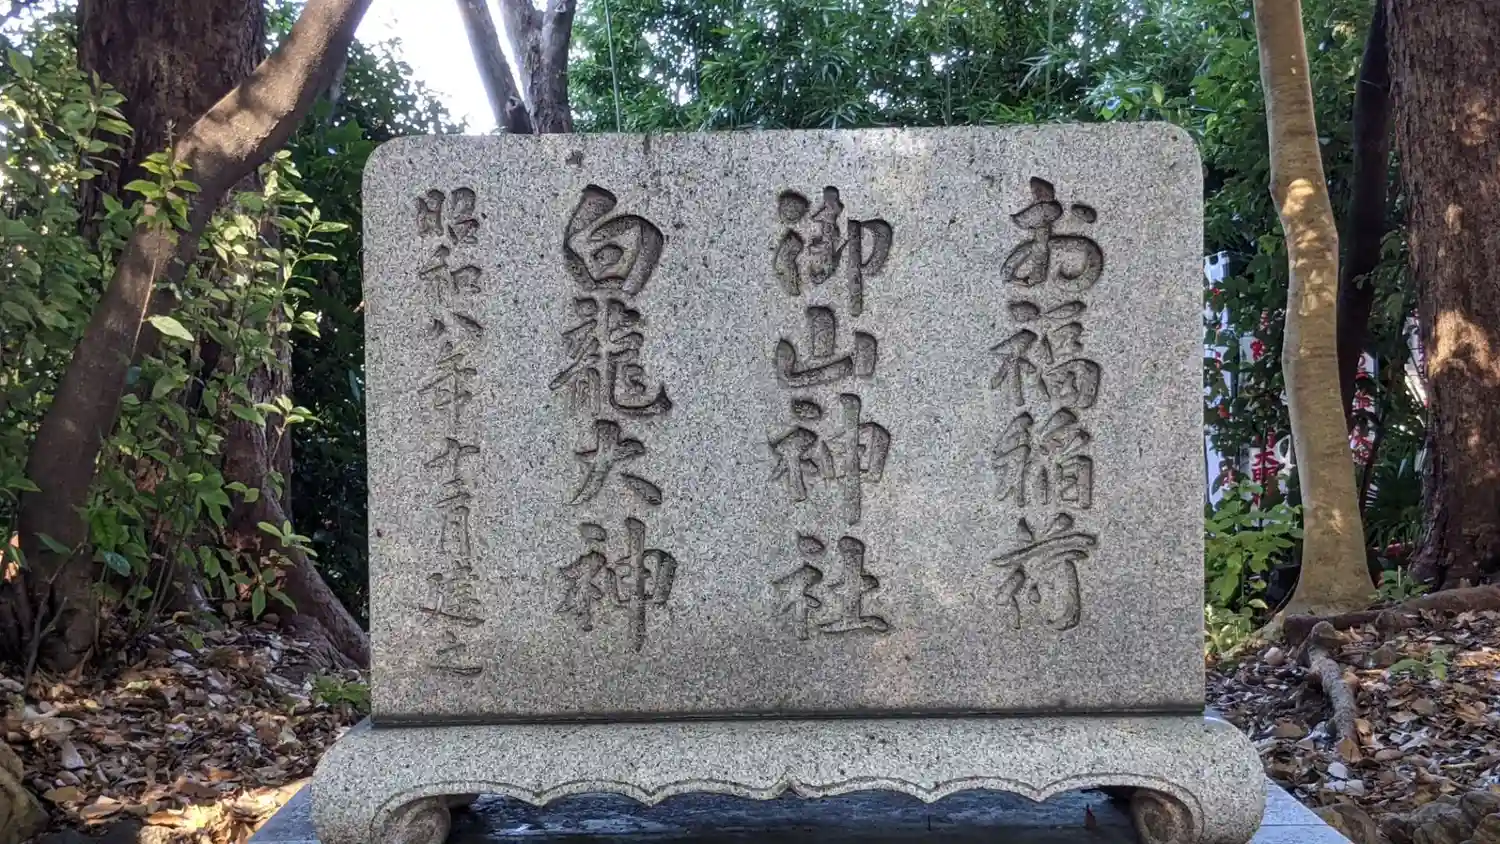 お福稲荷
御山神社
白龍大神
昭和八年十二月建之